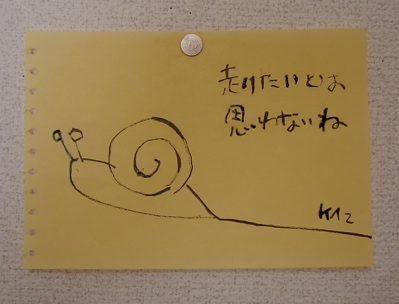 走りたいとは
思わないね